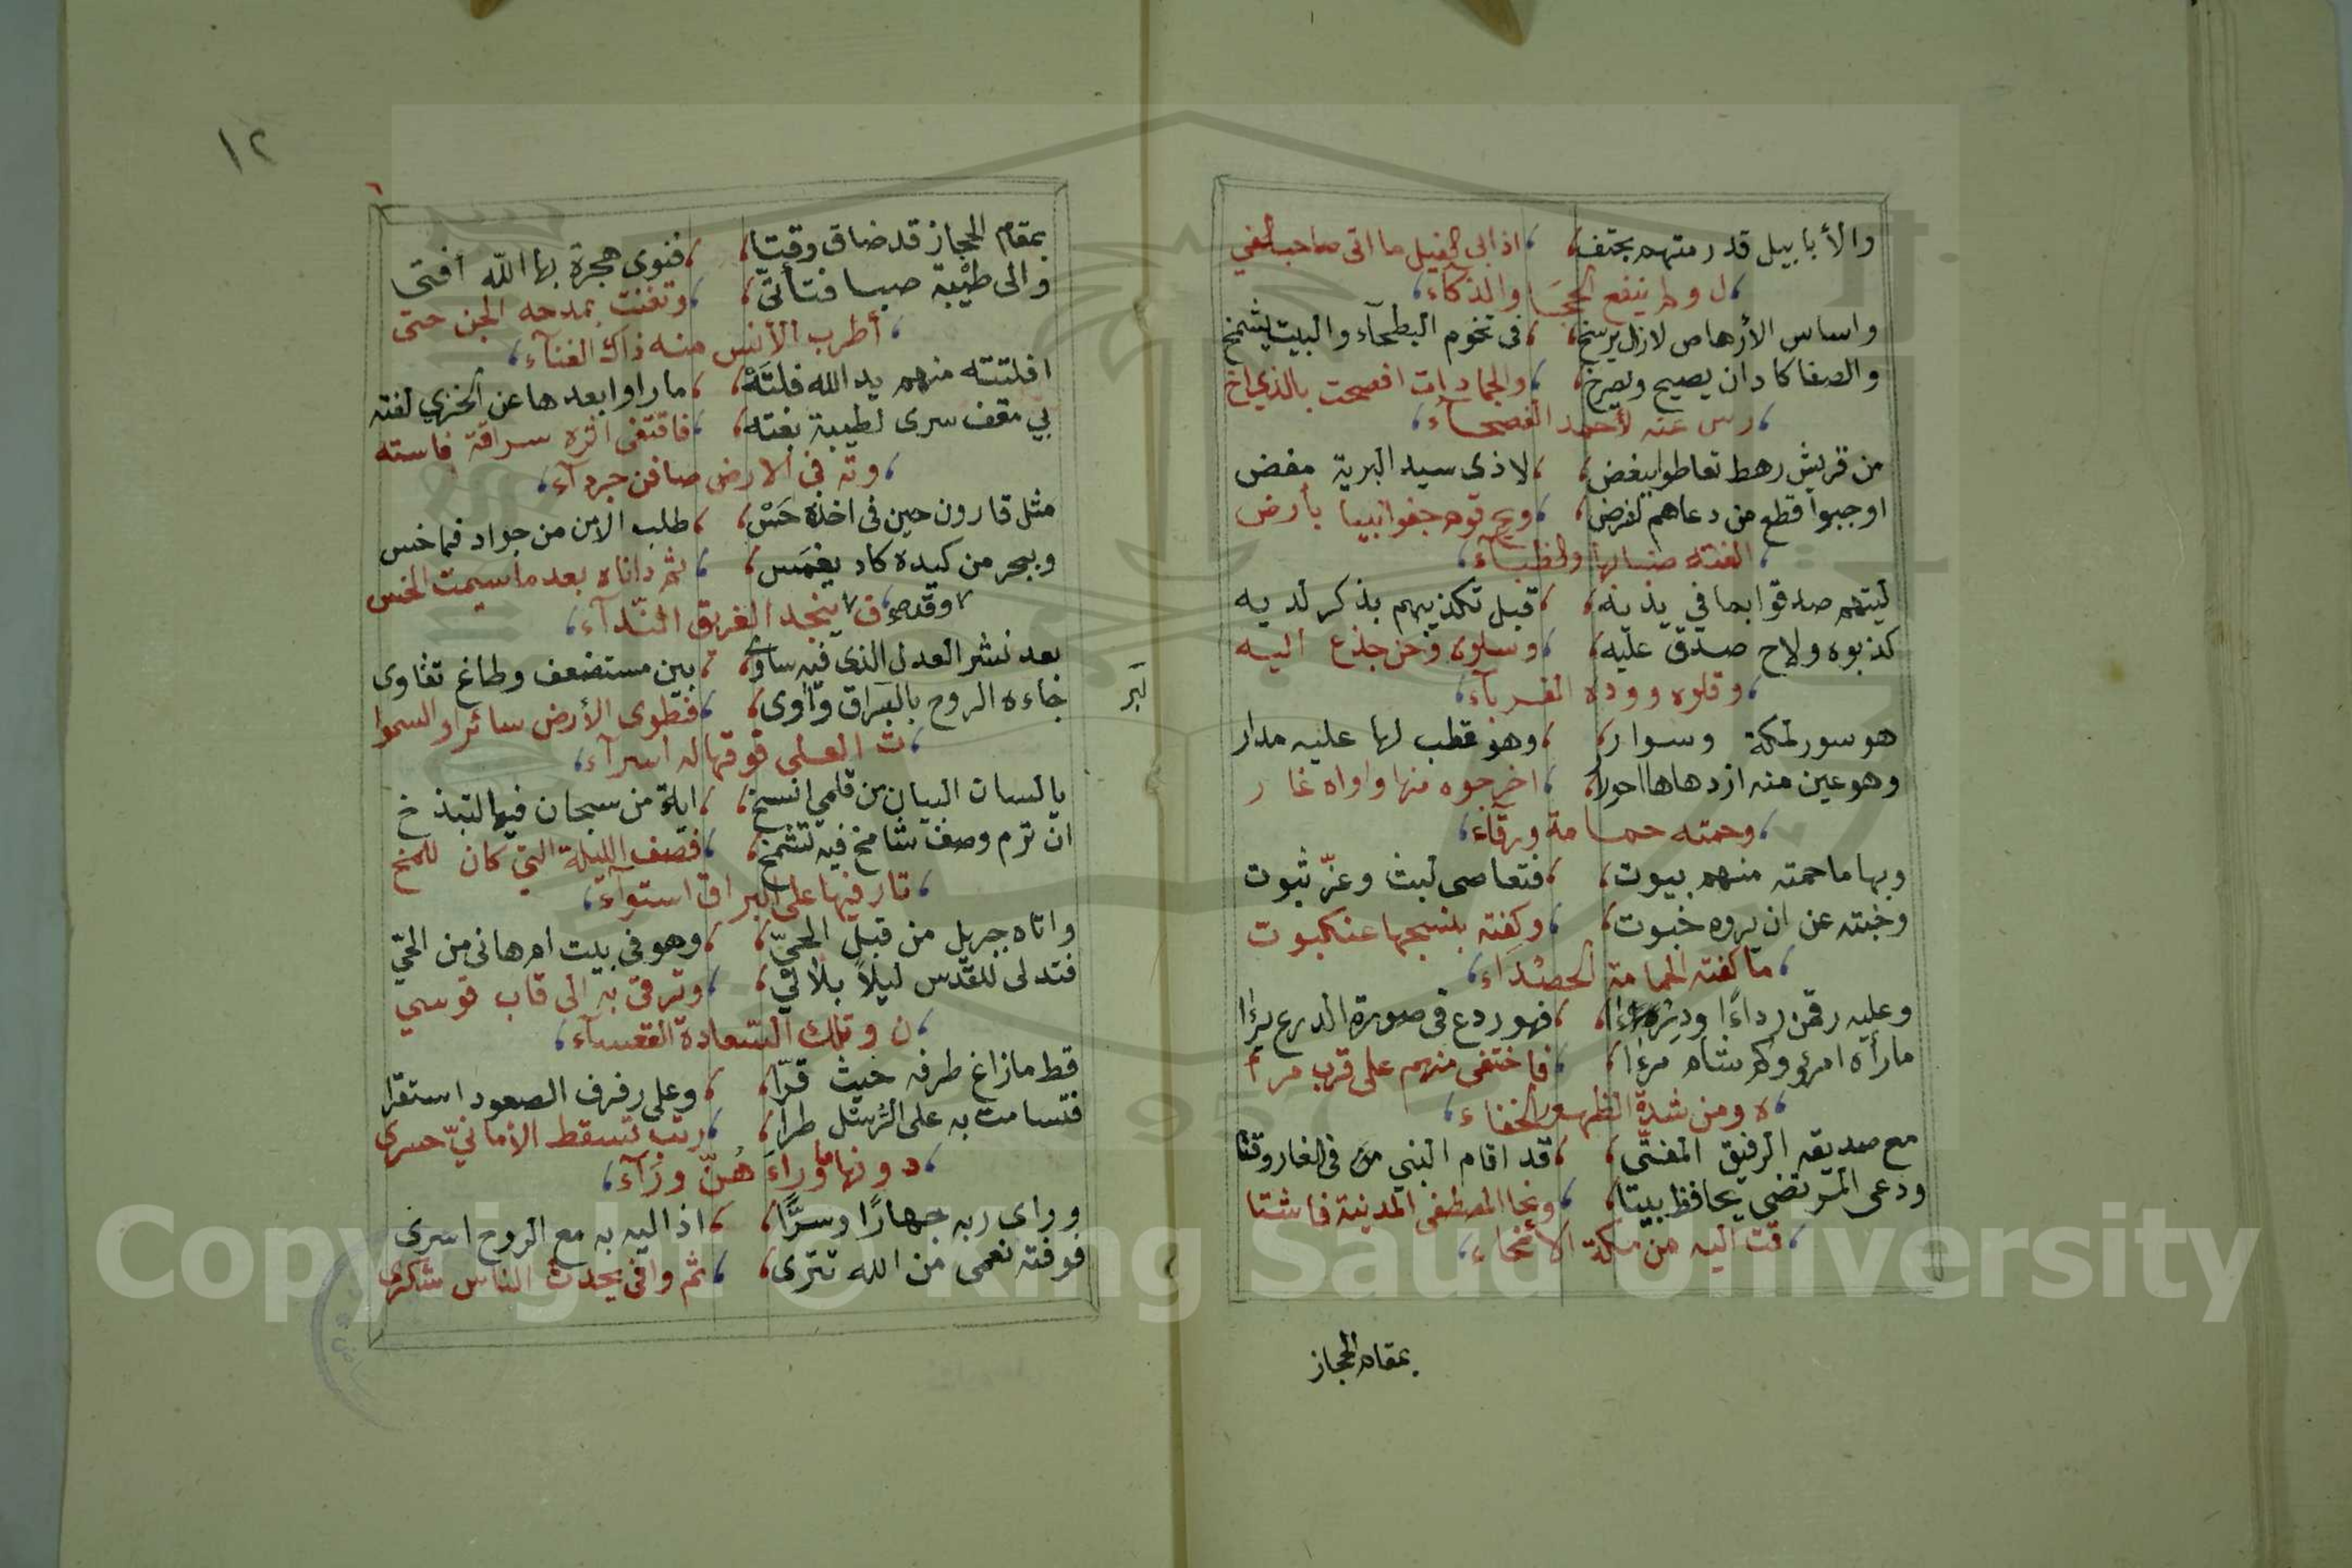 والأبابيل قد رمتهم بحتف، ، اذ ابى الفيل ما اتى صاحب الفي
، ل ولم ينفع الحجا والذكاء،
واساس الأرهاص لازال يرسخ، ، فى تخوم البطحآء والبيت يشمخ
والصفا كاد ان يصيح ويصرخ، ، والجمادات افصحت بالذي اخ
، رس عنه لأحمد الفصحآء،
من قريش رهط تعاطوا ببغض، ، لاذى سيد البرية مفض
اوجبوا قطع من دعاهم لفرض، ، ويح قوم جفوا نبيا بأرض
، الفته ضبابها والظبآء،
ليتهم صدقوا بما في يديه، ، قبل تكذيبهم بذكر لديه
كذبوه ولاح صدق عليه، ، وسلوه وحن جذع اليه
، وقلوه ووده الغربآء،
هو سور لمكة وسوار، ، وهو قطب لها عليه مدار
وهو عين منه ازدهاها احورار، ، اخرجوه منها واواه غار
، وحمته حمامة ورقآء،
وبها ما حمته منهم بيوت، ، فتعاصى لبث وعزّ ثبوت
وخبته عن ان يروه خبوت، ، وكفته بنسجها عنكبوت
، ما كفته الحمامة الحصداء،
وعليه رقمن رداءا ، فهو ردع فى صورة الدرع يرءا
مارآه امرؤ ولم شاه مرءا، ، فاختفى منهم على قرب مرأ
، ه ومن شدة الظهور الخفاء،
مع صديقه الرفيق المفتّى، ، قد اقام النبي من فى الغار وقتا
ودعى المرتضى يحافظ بيتا، ، ونحا المصطفى المدينة فاشتا
، قت اليه من مكة الأنحاء،
بمقام الحجاز
١٢
بمقام الحجاز قد ضاق وقتا، ، فنوى هجرة بها الله أفتى
والى طيبة صبا فتأتى، ، وتغنت بمدحه الجن حتى
، أطرب الأنس منه ذاك الغنآء،
افلتته منهم يد الله فلتة، ، ما راوا بعدها عن الخزي لفته
بي مقف سرى لطيبة بغته، ، فاقتفى اثره سراقة فاسته
، وته في الارض صافن جردآء،
مثل قارون حين فى اخذه حس، ، طلب الأمن من جواد فما خس
وببحر من كيده كاد يغمس، ، ثم داناه بعد ما سيمت الخس
، ف وقد ينجد الغريق الندآء،
بعد نشر العدل الذى فيه ساوى، ، بين مستضعف وطاغ تغاوى
جاءه الروح بالبراق وآوى، ، فطوى الأرض سائرا والسموا
، ت العلى فوقها له اسرآء،
يالسان البيان من قلمي انسخ، ، اية من سبحان فيها التبذخ
ان ترم وصف شامخ فيه تشمخ، ، فصف الليلة التي كان للمخ
، تار فيها على البراق استوآء،
واتاه جبريل من قبل الحيّ، ، وهو فى بيت ام هانى من الحيّ
فتدلى للقدس ليلا بلا ئي، ، وترقى به الى قاب قوسي
، ن وتلك السعادة القعسآء،
قط مازاغ طرفه حيث قرّا، ، وعلى رفرف الصعود استقرا
فتسامت به على الرسل طرا، ، رتب تسقط الأمانيّ حسرى
، دونها ما وراء هنّ ورآء،
وراى ربه جهارًا وسرًّا، ، اذ اليه به مع الروح اسرى
فوفته نعمى من الله تترى، ، ثم وافى يحدث الناس شكرى